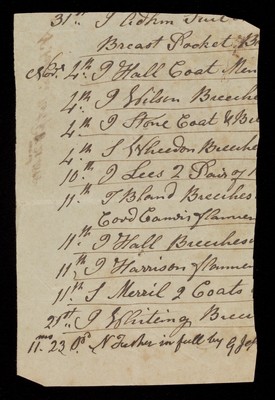 31st J Adkin Suit
Breast Pocket. B
Novr. 4th. J Hall Coat Men
4th. J Wilson Breeche
4th. J Stone Coat & Bre
4th. S Wheedon Breeche
10th. J Lees 2 Pair of
11th. T Bland Breeches
Cord
11th. J Hall Breeches
11th. J Harrison
11th. S Merril 2 Coats
21st. J Whiteing Breec
11mo 23 N Fisher in full by G